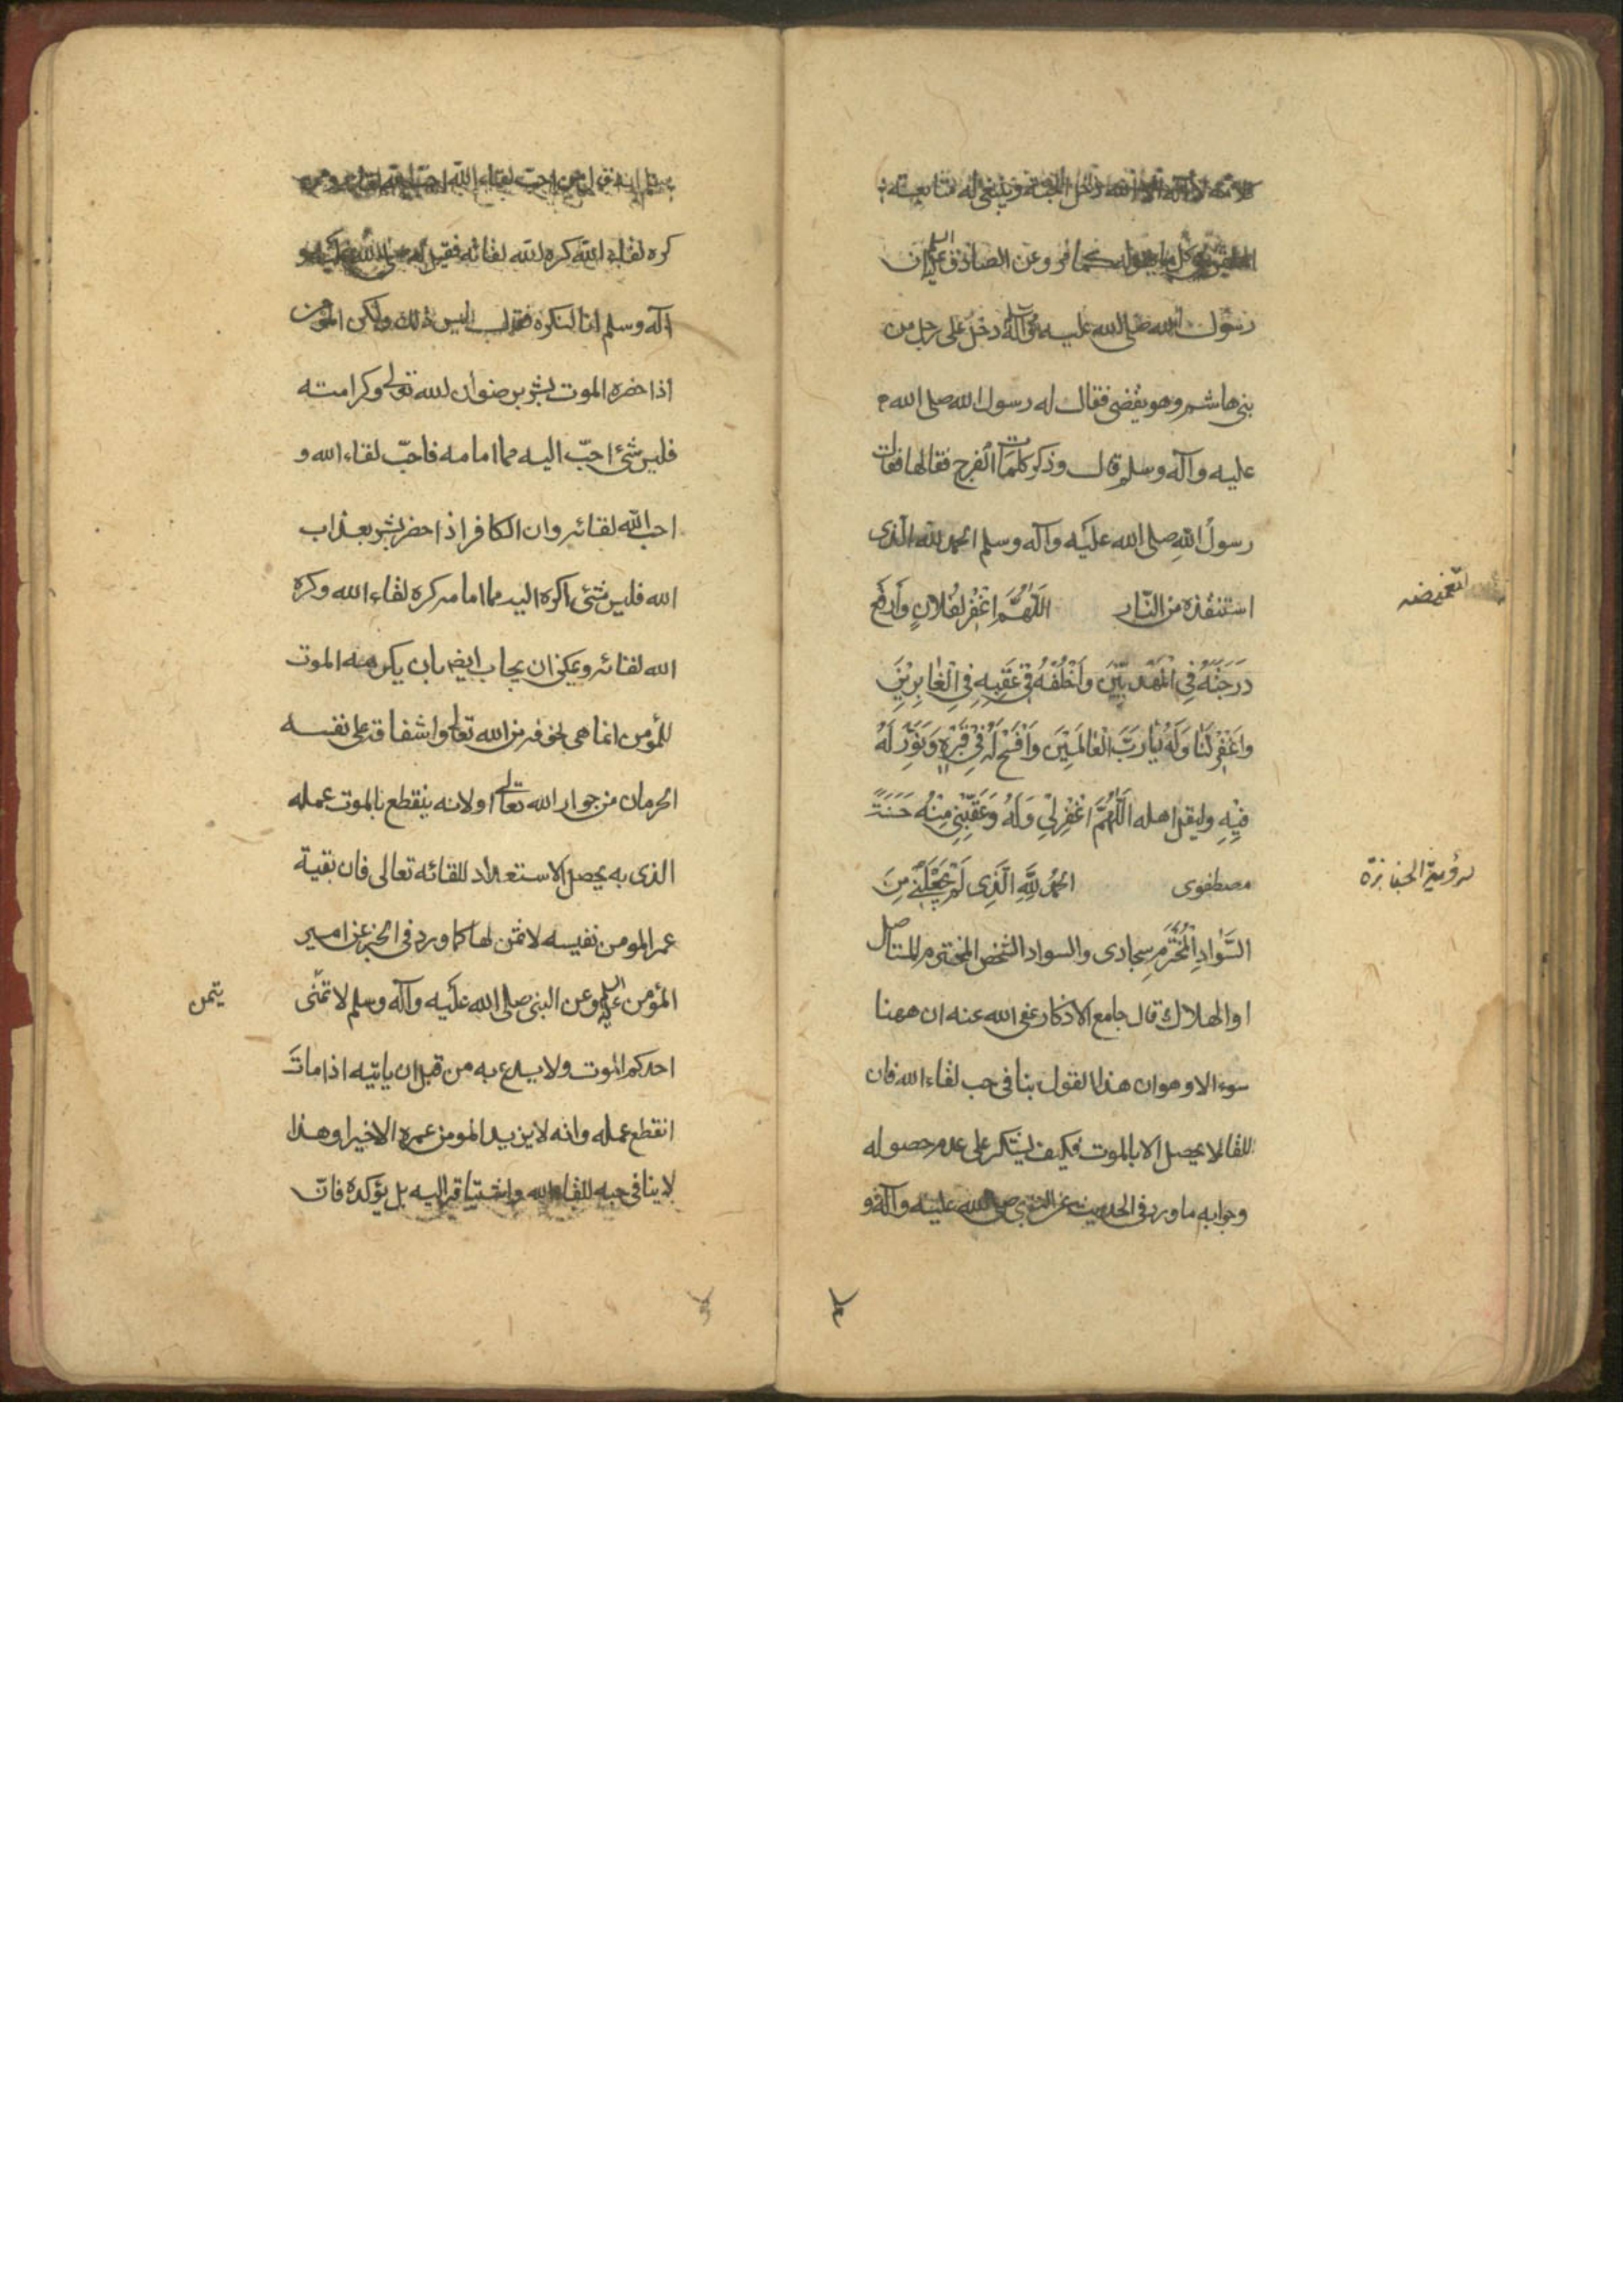 كلامه لا اله الا الله دخل الجنة وينبغى له متابعته
وعن الصادق عليه السلم ان
رسول الله صلى الله عليه وآله دخل على رجل من
بنى هاشم وهو يقضى فقال له رسول الله صلى الله
عليه وآله وسلم قال وذكر كلمات الفرج فقالها فقال
رسولُ اللهِ صلى الله عليه وآله وسلم الحمد لله الذى
استنقذه من النّار اَللّهُمَّ اغْفِرْ لِفُلانٍ وَارْفَعْ
التغميضه
دَرَجَتَهُ فِي الْمَهْدِيّينَ وَاَخْلُفْهُ فِي عَقِبِهِ فِي الْغابِرِينَ
وَاغْفِرْ لَنا وَلَهُ يا رَبَّ الْعالَمِينَ وَافْسَحْ لَهُ فِي قَبْرِهِ وَنَوِّرْ لَهُ
فِيهِ وليقل اهله اَللّهُمَّ اغْفِرْ لِي وَلَهُ وَعَقِّبْنِي مِنْهُ حَسَنَةً
مصطفوى اَلحَمْدُ لِلّهِ الَّذِى لَمْ يَجْعَلْنِي مِنَ
لرؤية الجنازة
السَّوادِ الْمُخْتَرَمِ سجادى والسواد الشخص المخترم المستاصل
او الهلاك قال جامع الاذكار عفى الله عنه ان ههنا
سوءالا وهو ان هذا القول ينافى حب لقاء الله فان
اللقا لا يحصل الا بالموت فكيف يشكر على عدم حصوله
وجوابه ما ورد فى الحديث عن النبى صلى الله عليه وآله و
سلم انه قال من احب لقاء الله احب الله لقائه ومن
كره لقاء الله كره الله لقائه فقيل له صلى الله عليه و
آله وسلم انا لنكره الموت فقال ليس ذلك ولكن المؤمن
اذا حضره الموت بشر برضوان الله تعالى وكرامته
فليس شئ احبّ اليه مما امامه فاحبّ لقاء الله و
احب الله لقائه وان الكافر اذا حضر بشر بعذاب
الله فليس شئى اكره اليه مما امامه كره لقاء الله وكره
الله لقائه ويمكن ان يجاب ايضا بان كرهه الموت
للمؤمن انما هى لخوفه من الله تعالى واشفاقه على نفسه
الحرمان من جوار الله تعالى او لانه ينقطع بالموت عمله
الذى به يحصل الاستعداد للقائه تعالى فان بقية
عمر المومن نفيسه لا ثمن لها كما ورد فى الخبر عن امير
المؤمن عليه السلم وعن النبى صلى الله عليه وآله وسلم لا تمنّى
يتمن
احدكم الموت ولا يدع به من قبل ان ياتيه اذا ماتَ
انقطع عمله وانه لا يزيد المومن عمره الا خيرا وهذا
لا ينافى حبه للقاء الله واشتياقه اليه بل يؤكده فانّ